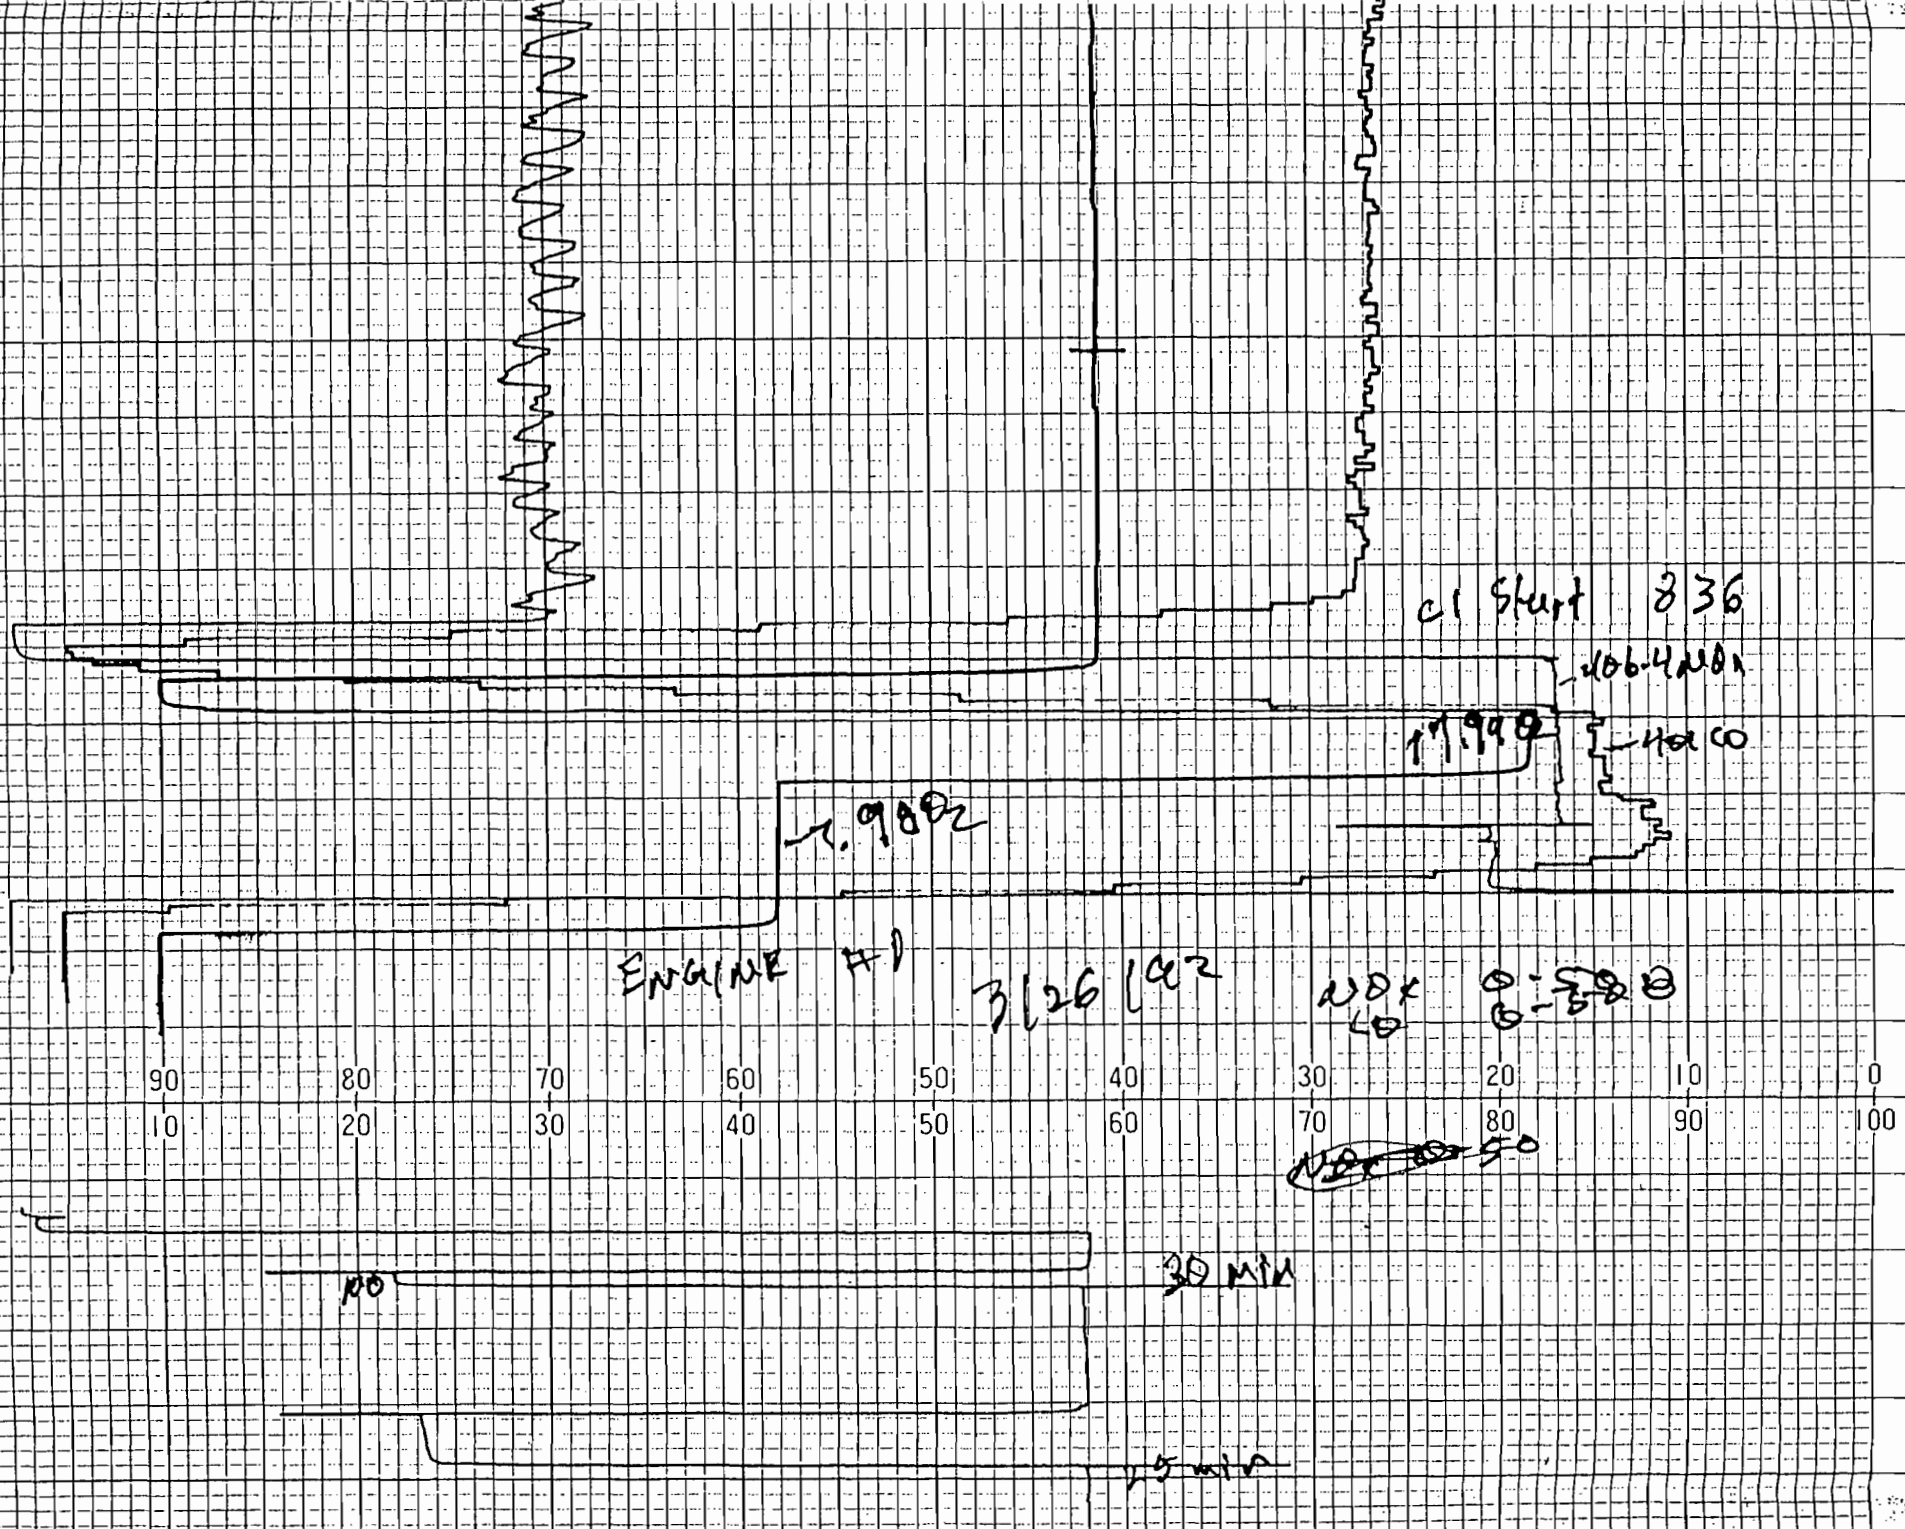 c1 Start 836
406.4 NOx
17.99 O
40 CO
7.98 O2
ENGINE #1
3/26/92
NOx 0-500
CO 0-500
90 80 70 60 50 40 30 20 10 0
10 20 30 40 50 60 70 80 90 100
30 MIN
NO
25 min